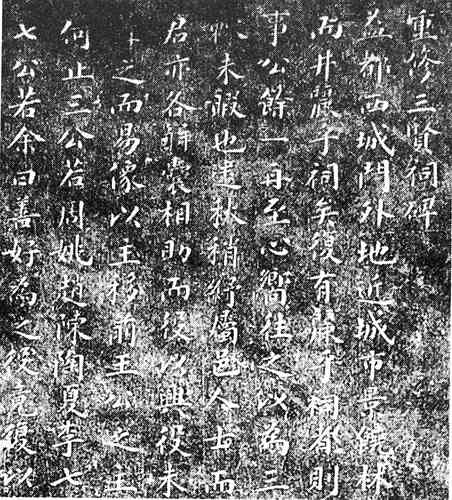 重修三賢祠碑
益都西城門外地近城市景饒林
而井麗于祠矣復有廉于祠者則
事公餘一再至心嚮往之以為三
未暇也逮秋稍紓屬邑人士而
君亦各解囊相助而後以興役未
之而易像以主移前王公之主
何止三公若周姚趙陳陶夏李七
七公若余曰善好為之後竟復以